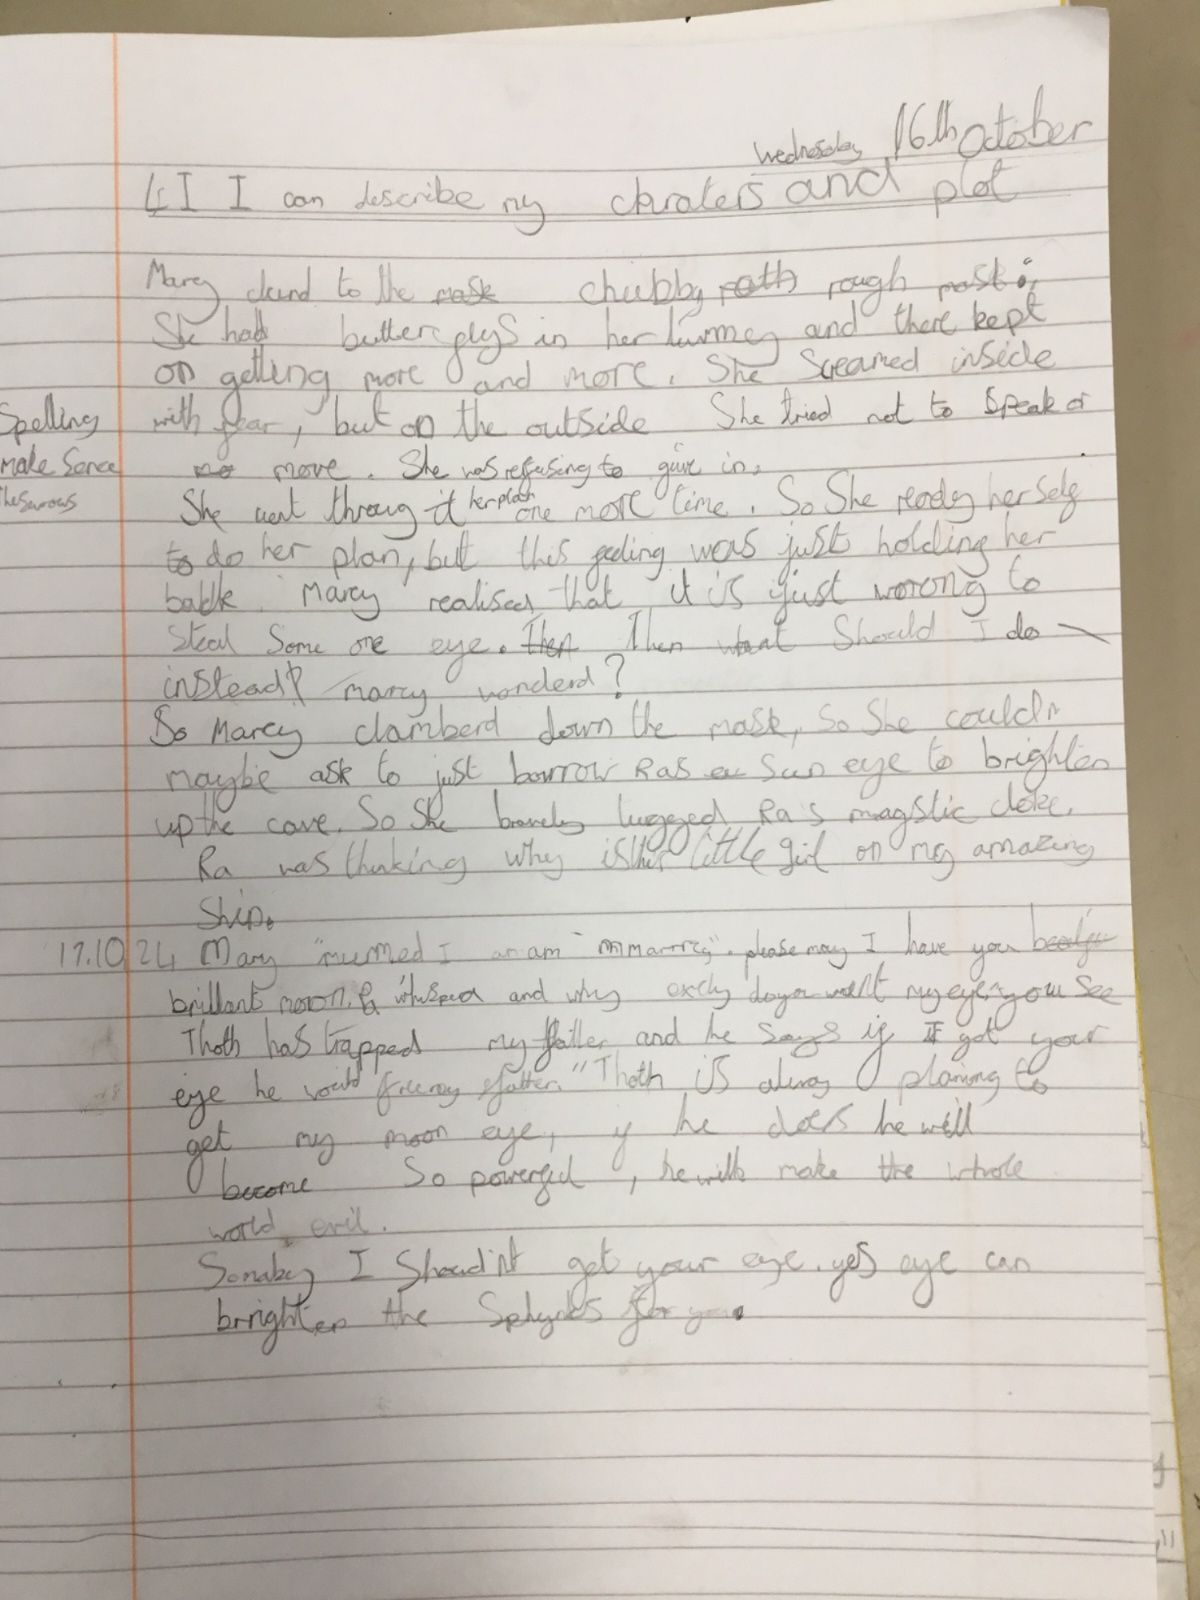 Wednesday 16th October
LI I can describe my charaters and plot
Marcy to the mask chubby rough mast;
She had butter flys in her tummey and there kept
on getting more and more. She screamed inside
Spelling with fear, but on the outside She tried not to Speak or
make Sence mo move. She was refusing to give in.
thesurows
She went throug it her plan one more time. So She ready her Self
to do her plan, but this feeling was just holding her
back. Marcy realised that it is just worong to
Steal Some one eye. Then Then what Should I do
instead? marcy wonderd?
So Marcy clamberd down the mask, So She could
maybe ask to just borrow Ras Sun eye to brighten
up the cave. So She bravely lugged Ra's magstic cloke.
Ra was thinking why is this little girl on my amazing
Ship.
17.10.24 Marcy "murmed I am am mmmarrcy". please may I have your
brillant moon. whisperd and why do you want my eye. you See
Thoth has trapped my father and he Says if I got your
eye he would free my father." Thoth is planing to
get my moon eye, if he does he will
become So powerful, he will make the whole
world evil.
I Should'nt get your eye. yes eye can
brrighten the Sphynks for you.